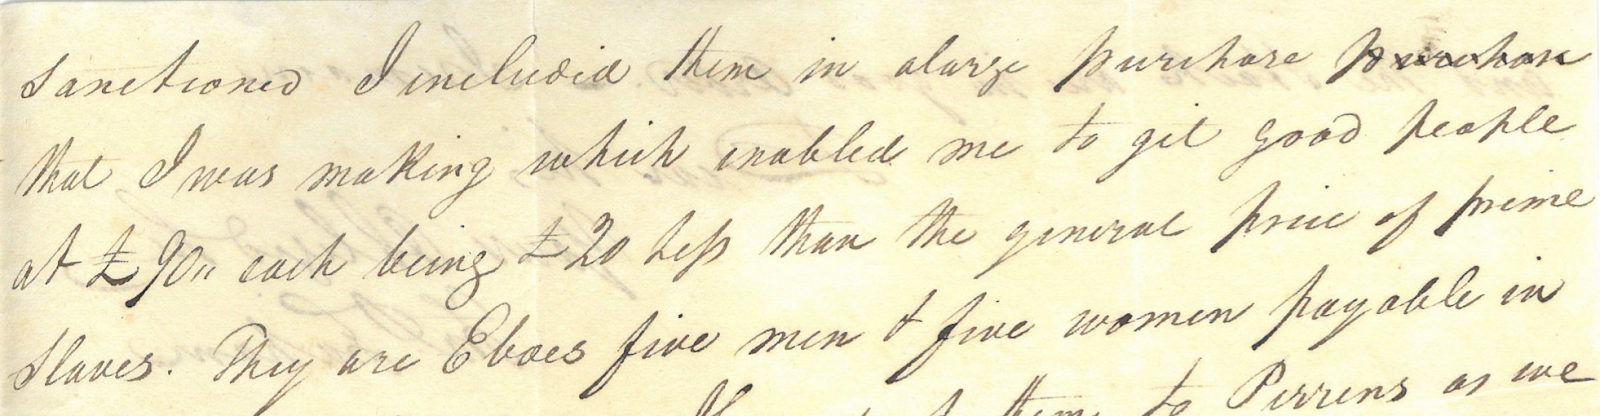 sanctioned I included them in a large purchase purchase
that I was making which enabled me to get good people
at £90,, each being £20 less than the general price of prime
Slaves. They are Eboes five men & five women payable in
them to Perrins as we